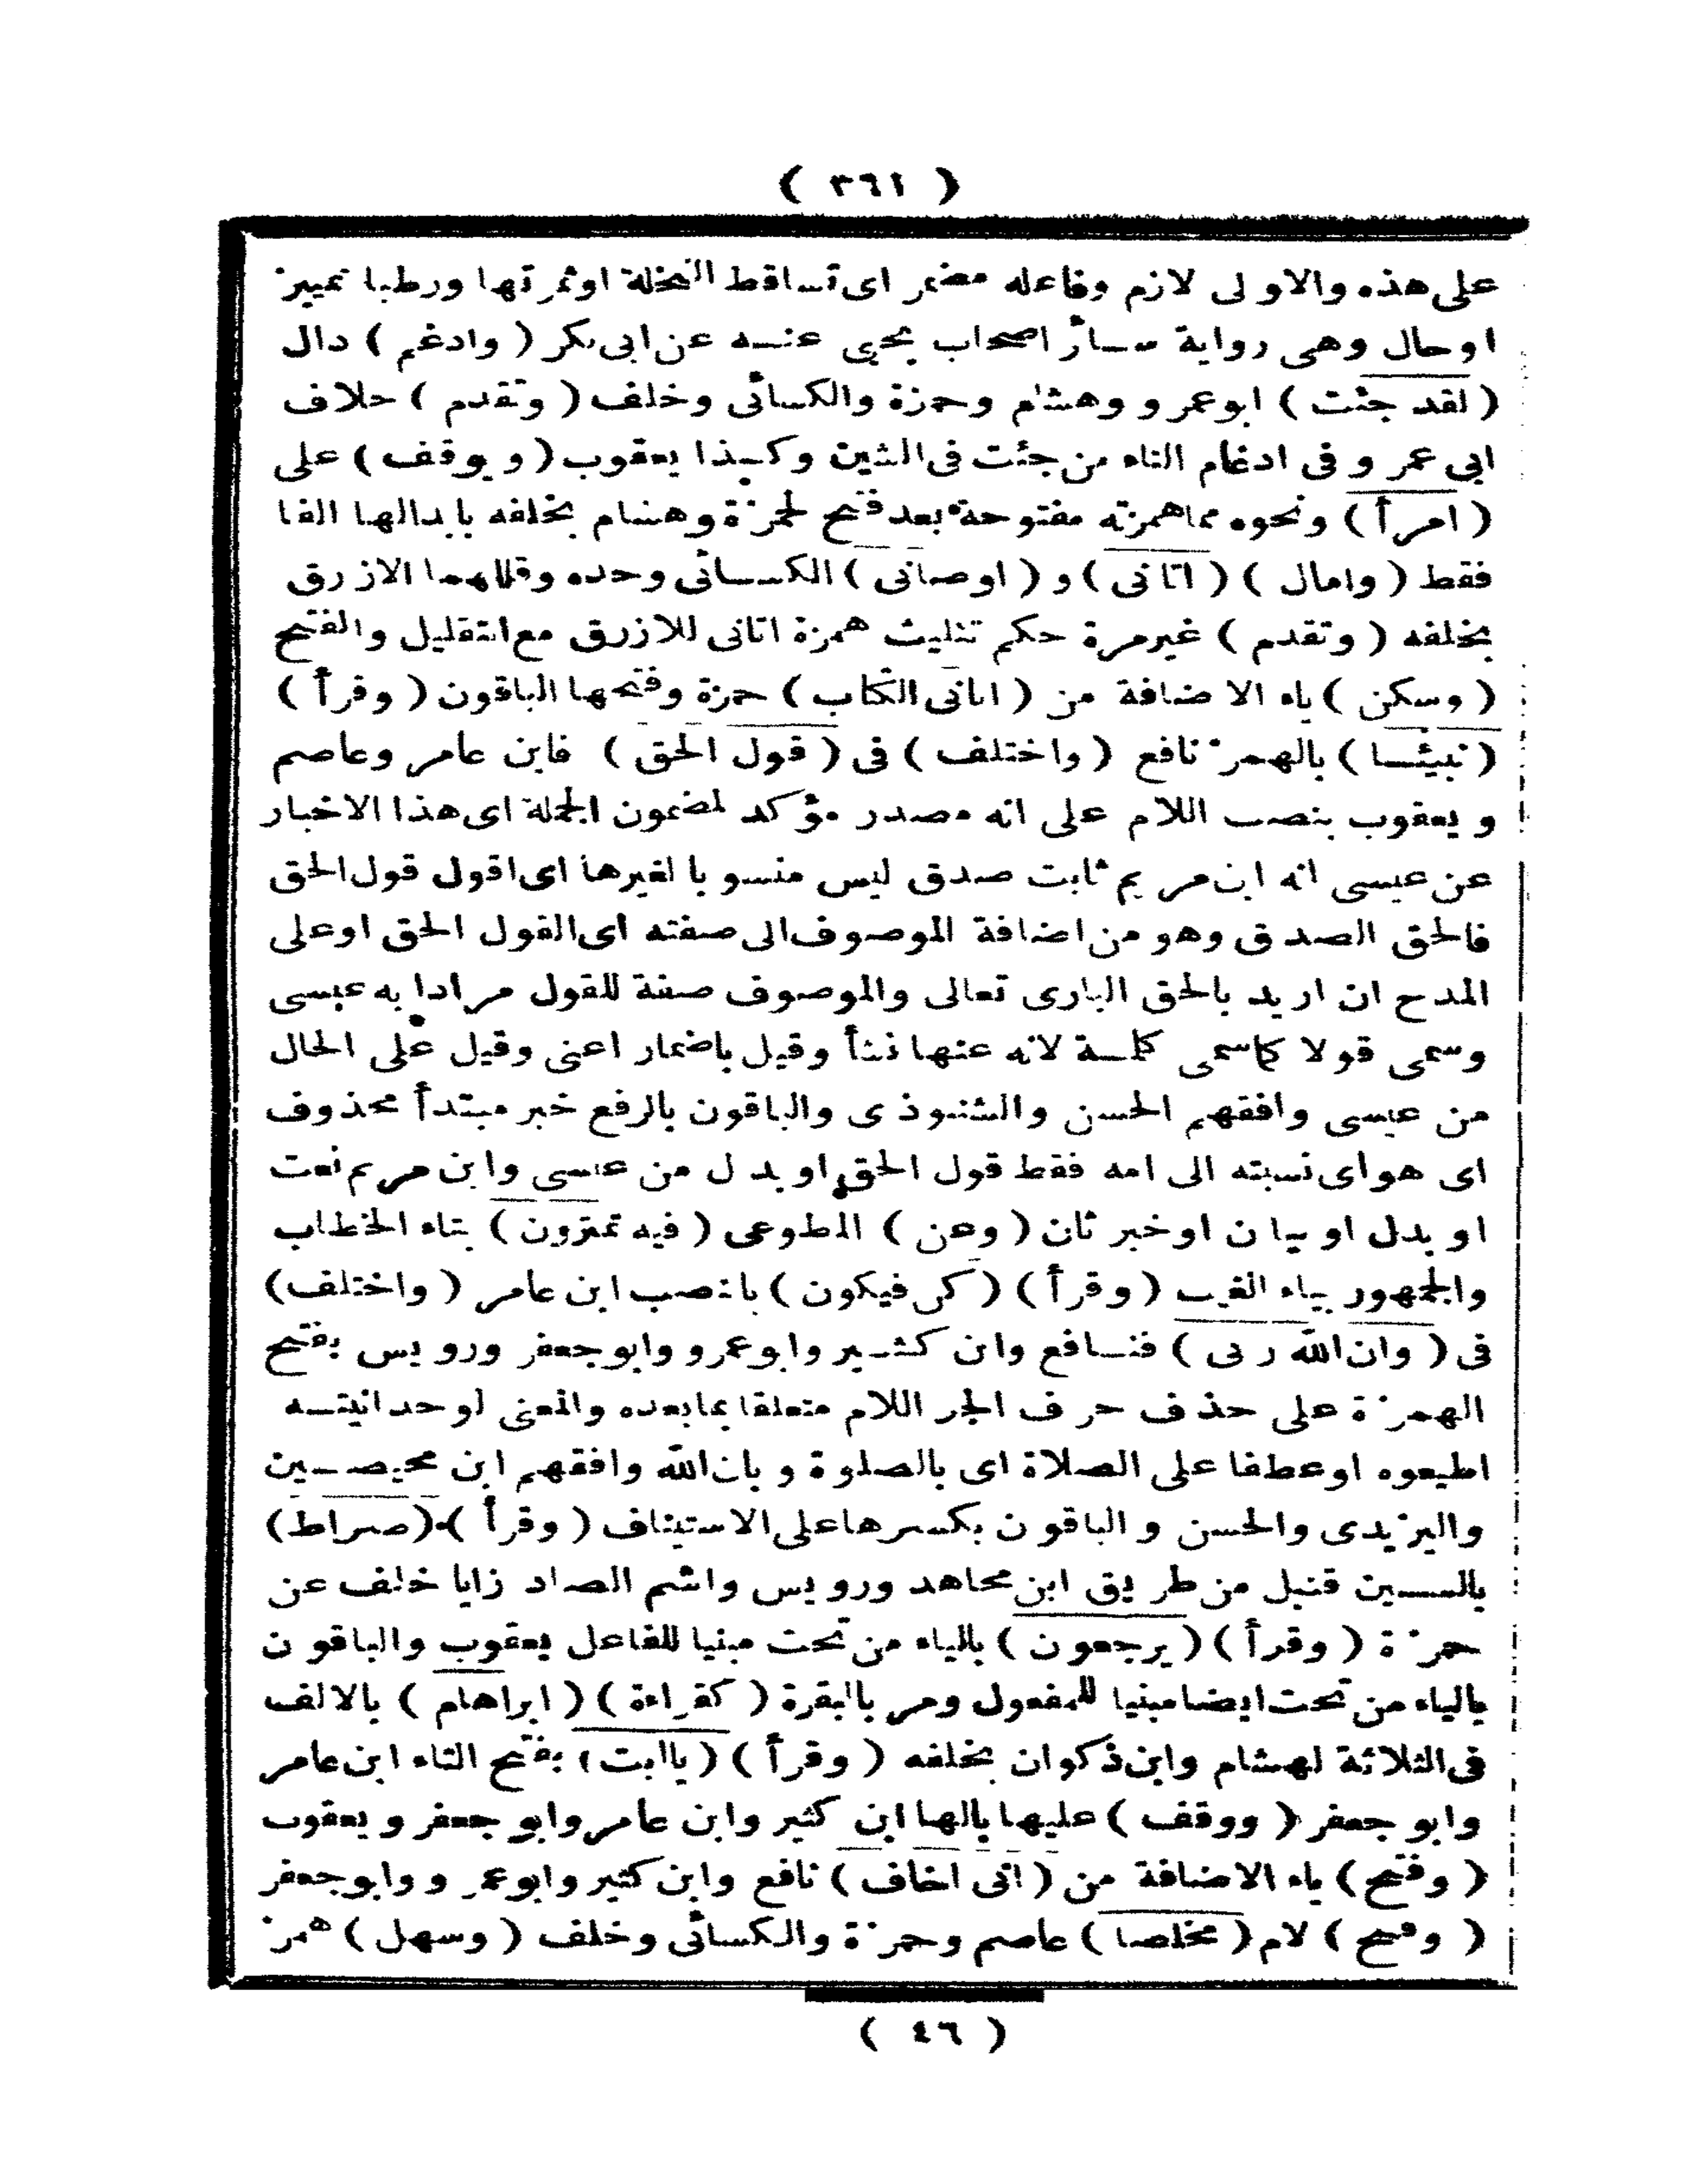 ( ٣٦١ )
على هذه والاولى لازم وفاعله مضمر اى تساقط النخلة اوثمرتها ورطبا تمييز
اوحال وهى رواية سائر اصحاب يحيى عنه عن ابى بكر ( وادغم ) دال
( لقد جئت ) ابوعمرو وهشام وحمزة والكسائى وخلف ( وتقدم ) خلاف
ابى عمرو فى ادغام التاء من جئت فى الشين وكذا يعقوب ( ويوقف ) على
( امرأ ) ونحوه مماهمزته مفتوحة بعد فتح لحمزة وهشام بخلفه بابدالها الفا
فقط ( وامال ) ( اتانى ) و ( اوصانى ) الكسائى وحده وقللهما الازرق
بخلفه ( وتقدم ) غيرمرة حكم تثليث همزة اتانى للازرق مع التقليل والفتح
( وسكن ) ياء الاضافة من ( اتانى الكتاب ) حمزة وفتحها الباقون ( وقرأ )
( نبيئا ) بالهمز نافع ( واختلف ) فى ( قول الحق ) فابن عامر وعاصم
ويعقوب بنصب اللام على انه مصدر مؤكد لمضمون الجملة اى هذا الاخبار
عن عيسى انه ابن مريم ثابت صدق ليس منسوبا لغيرها اى اقول قول الحق
فالحق الصدق وهو من اضافة الموصوف الى صفته اى القول الحق اوعلى
المدح ان اريد بالحق البارى تعالى والموصوف صفة للقول مرادا به عيسى
وسمى قولا كاسمى كلمة لانه عنها نشأ وقيل باضمار اعنى وقيل على الحال
من عيسى وافقهم الحسن والشنبوذى والباقون بالرفع خبر مبتدأ محذوف
اى هو اى نسبته الى امه فقط قول الحق او بدل من عيسى وابن مريم نعت
او بدل او بيان اوخبر ثان ( وعن ) المطوعى ( فيه تمترون ) بتاء الخطاب
والجمهور بياء الغيب ( وقرأ ) ( كن فيكون ) بالنصب ابن عامر ( واختلف )
فى ( وان الله ربى ) فنافع وابن كثير وابوعمرو وابوجعفر ورويس بفتح
الهمزة على حذف حرف الجر اللام متعلقا بمابعده والمعنى لوحدانيته
اطيعوه اوعطفا على الصلاة اى بالصلوة وبان الله وافقهم ابن محيصين
واليزيدى والحسن والباقون بكسرها على الاستيناف ( وقرأ ) ( صراط )
بالسين قنبل من طريق ابن مجاهد ورويس واشم الصاد زايا خلف عن
حمزة ( وقرأ ) ( يرجعون ) بالياء من تحت مبنيا للفاعل يعقوب والباقون
بالياء من تحت ايضا مبنيا للمفعول ومر بالبقرة ( كقراءة ) ( ابراهام ) بالالف
فى الثلاثة لهشام وابن ذكوان بخلفه ( وقرأ ) ( ياابت ) بفتح التاء ابن عامر
وابو جعفر ( ووقف ) عليها بالها ابن كثير وابن عامر وابو جعفر ويعقوب
( وفتح ) ياء الاضافة من ( انى اخاف ) نافع وابن كثير وابوعمرو وابوجعفر
( وفتح ) لام ( مخلصا ) عاصم وحمزة والكسائى وخلف ( وسهل ) همز
( ٤٦ )